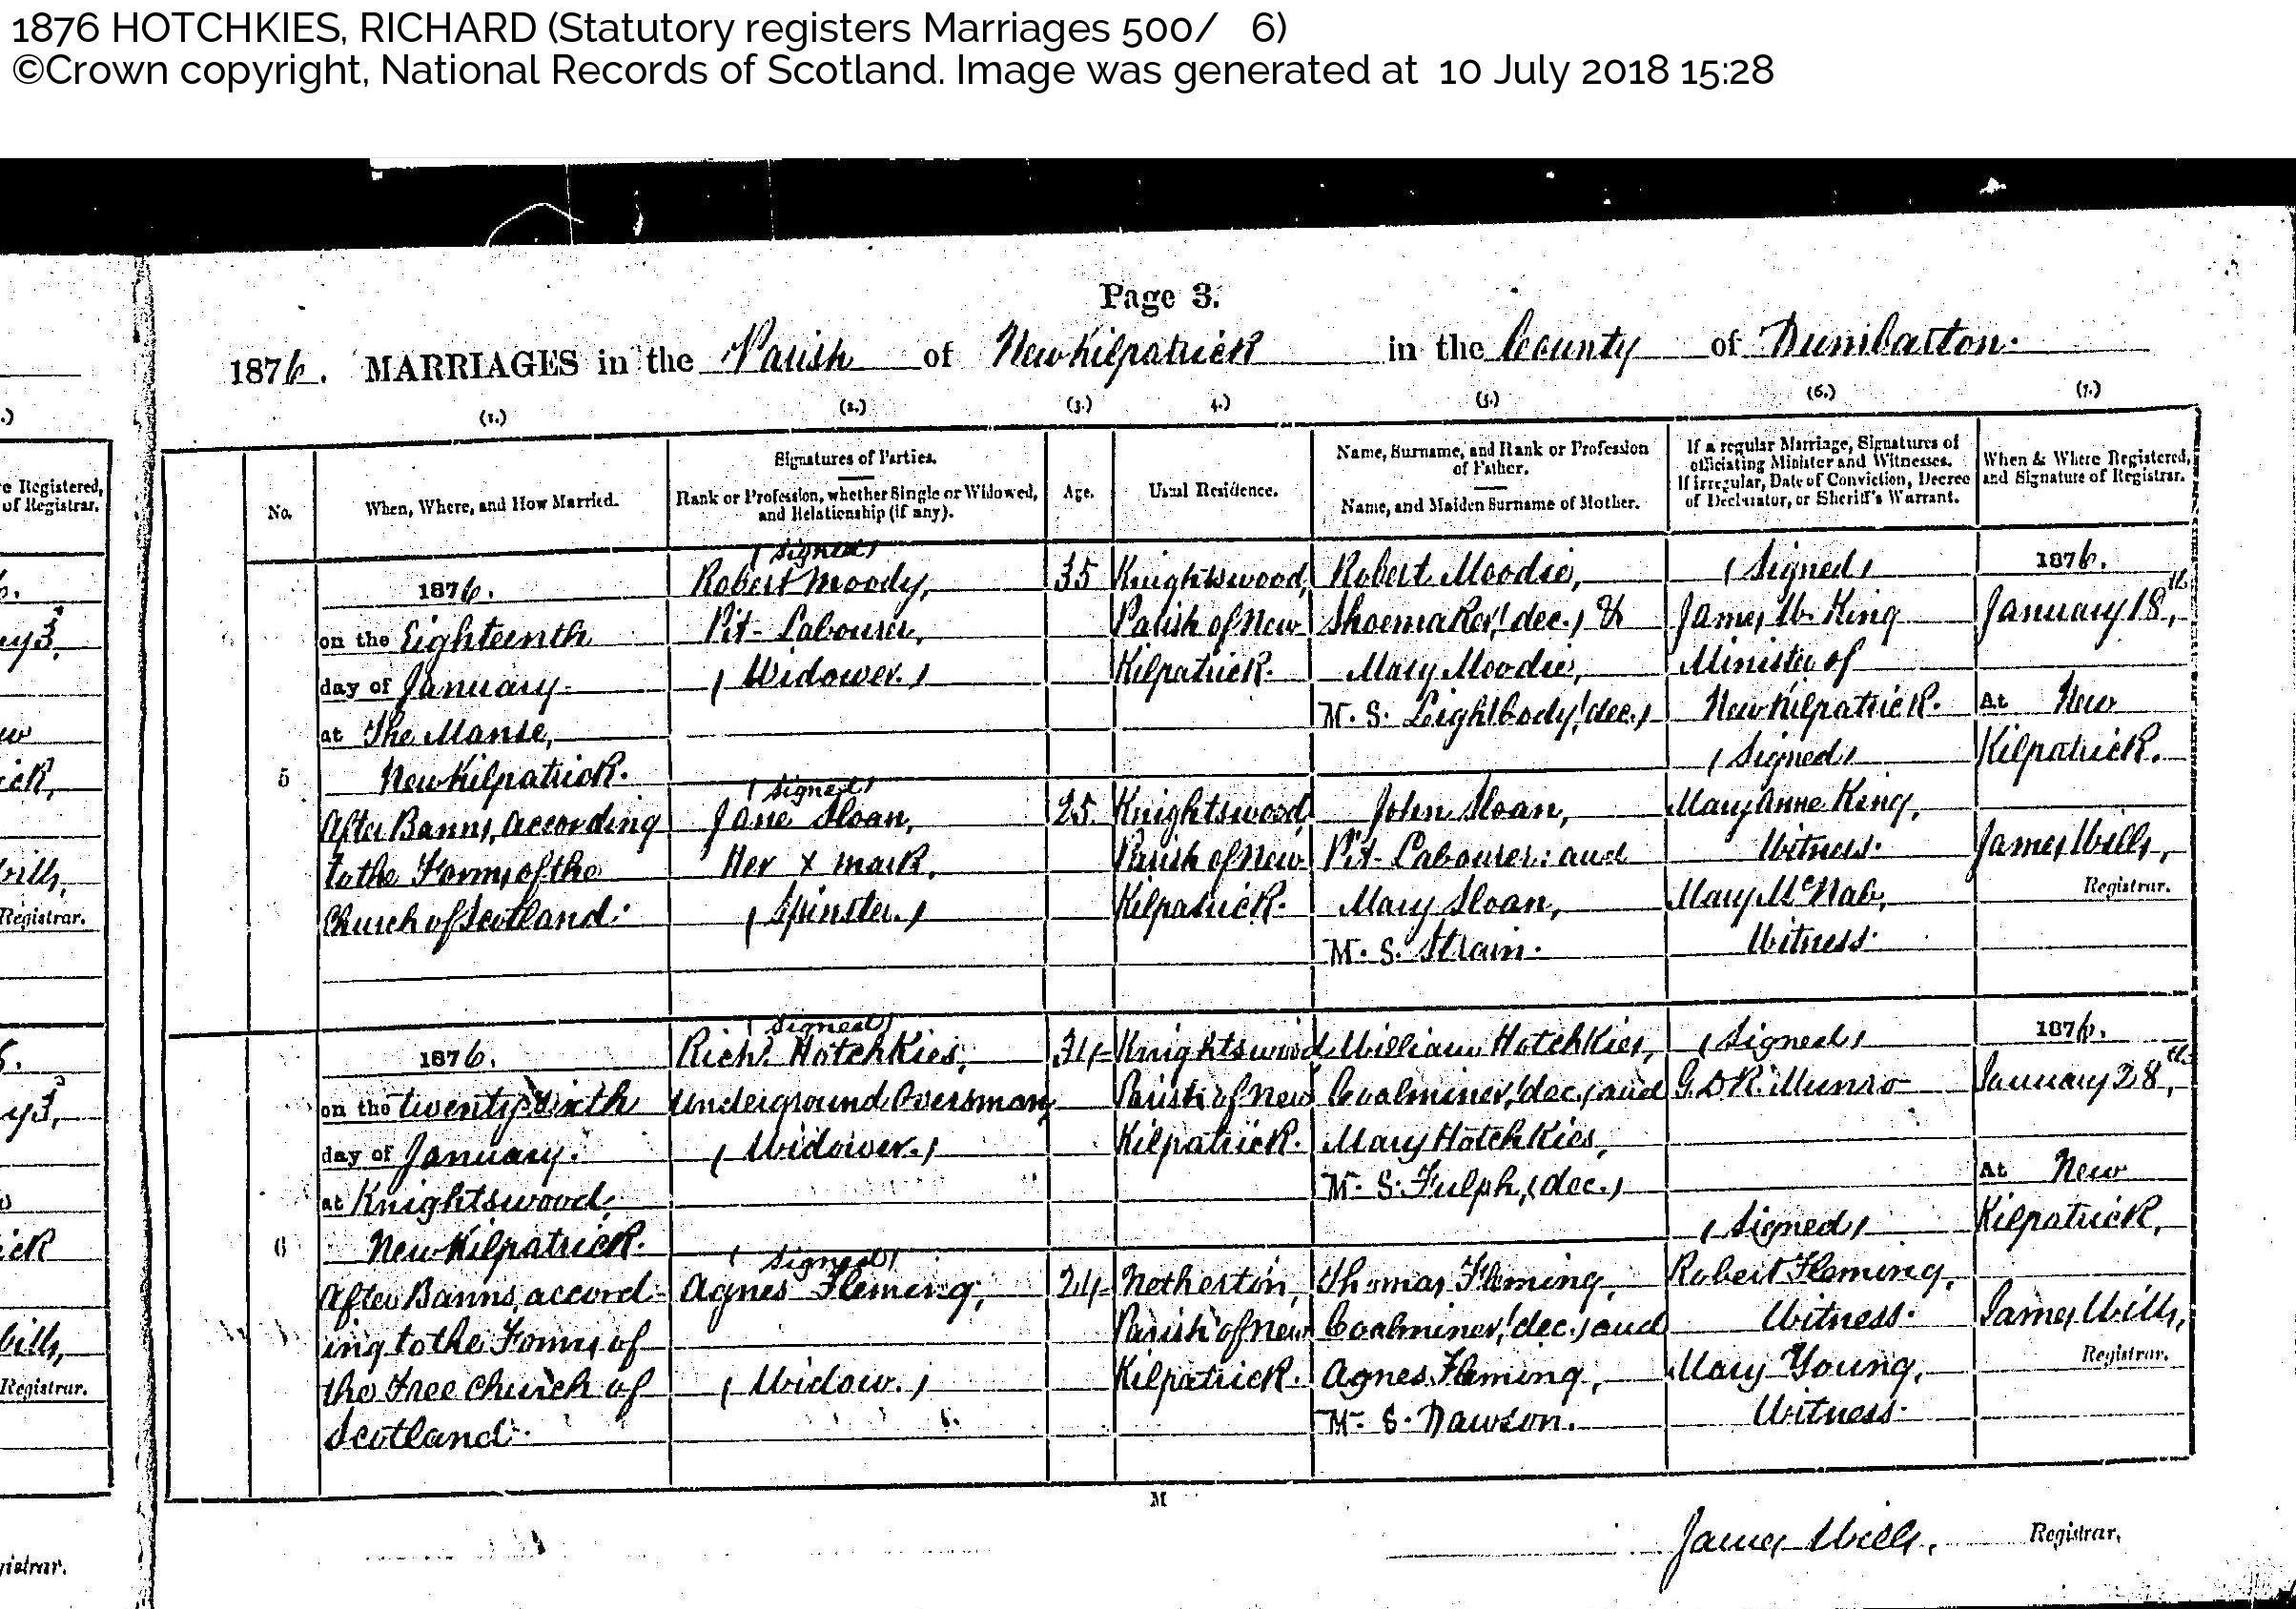 1876 HOTCHKIES, RICHARD (Statutory registers Marriages 500/ 6)
©Crown copyright, National Records of Scotland. Image was generated at 10 July 2018 15:28
Page 3.
1876. MARRIAGES in the Parish of New Kilpatrick in the County of Dumbarton.
(1.) (2.) (3.) 4.) (5.) (6.) (7.)
No.
When, Where, and How Married.
Signatures of Parties.
Rank or Profession, whether Single or Widowed,
and Relationship (if any).
Age.
Usual Residence.
Name, Surname, and Rank or Profession
of Father.
Name, and Maiden Surname of Mother.
If a regular Marriage, Signatures of
officiating Minister and Witnesses.
If irregular, Date of Conviction, Decree
of Declarator, or Sheriff's Warrant.
When & Where Registered,
and Signature of Registrar.
5
1876.
on the Eighteenth
day of January
at The Manse,
New Kilpatrick.
After Banns, according
to the Forms of the
Church of Scotland.
(Signed)
Robert Moody,
Pit-Labourer,
(Widower.)
(Signed)
Jane Sloan,
Her x mark.
(Spinster.)
35
25
Knightswood,
Parish of New
Kilpatrick.
Knightswood
Parish of New
Kilpatrick.
Robert Moodie,
Shoemaker, (dec.) &
Mary Moodie,
M. S. Lightbody (dec.)
John Sloan,
Pit-Labourer: and
Mary Sloan,
M. S. Strain.
(Signed)
James W. King
Minister of
New Kilpatrick.
(Signed)
Mary Anne King,
Witness.
Mary McNab,
Witness.
1876.
January 18th,
At New
Kilpatrick.
James Wills,
Registrar.
6
1876.
on the twenty sixth
day of January.
at Knightswood,
New Kilpatrick.
After Banns, accord-
ing to the Forms of
the Free Church of
Scotland.
(Signed)
Richd. Hotchkies,
Underground Oversman,
(Widower.)
(Signed)
Agnes Fleming,
(Widow.)
34
24
Knightswood
Parish of New
Kilpatrick.
Netherton,
Parish of New
Kilpatrick.
William Hotchkies,
Coalminer, (dec.) and
Mary Hotchkies,
M. S. Fulph, (dec.)
Thomas Fleming,
Coalminer, (dec.) and
Agnes Fleming,
M. S. Dawson.
(Signed)
G. D. R. Munro
(Signed)
Robert Fleming,
Witness.
Mary Young,
Witness.
1876.
January 28th,
At New
Kilpatrick,
James Wills,
Registrar.
M
James Wills, Registrar.